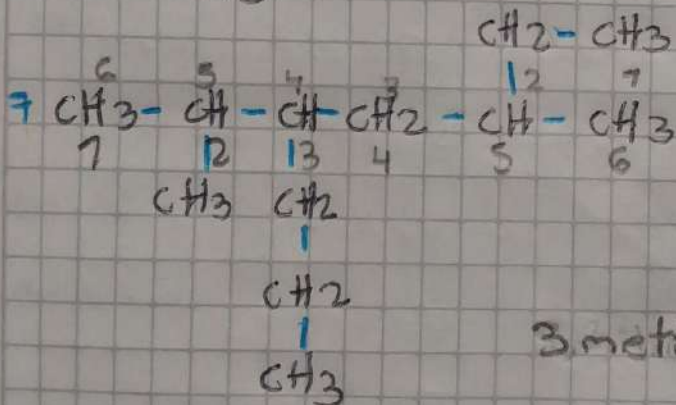 CH2 - CH3
6 5 4 3 2 1
7 CH3 - CH - CH - CH2 - CH - CH3
1 2 3 4 5 6
CH3 CH2
CH2
CH3